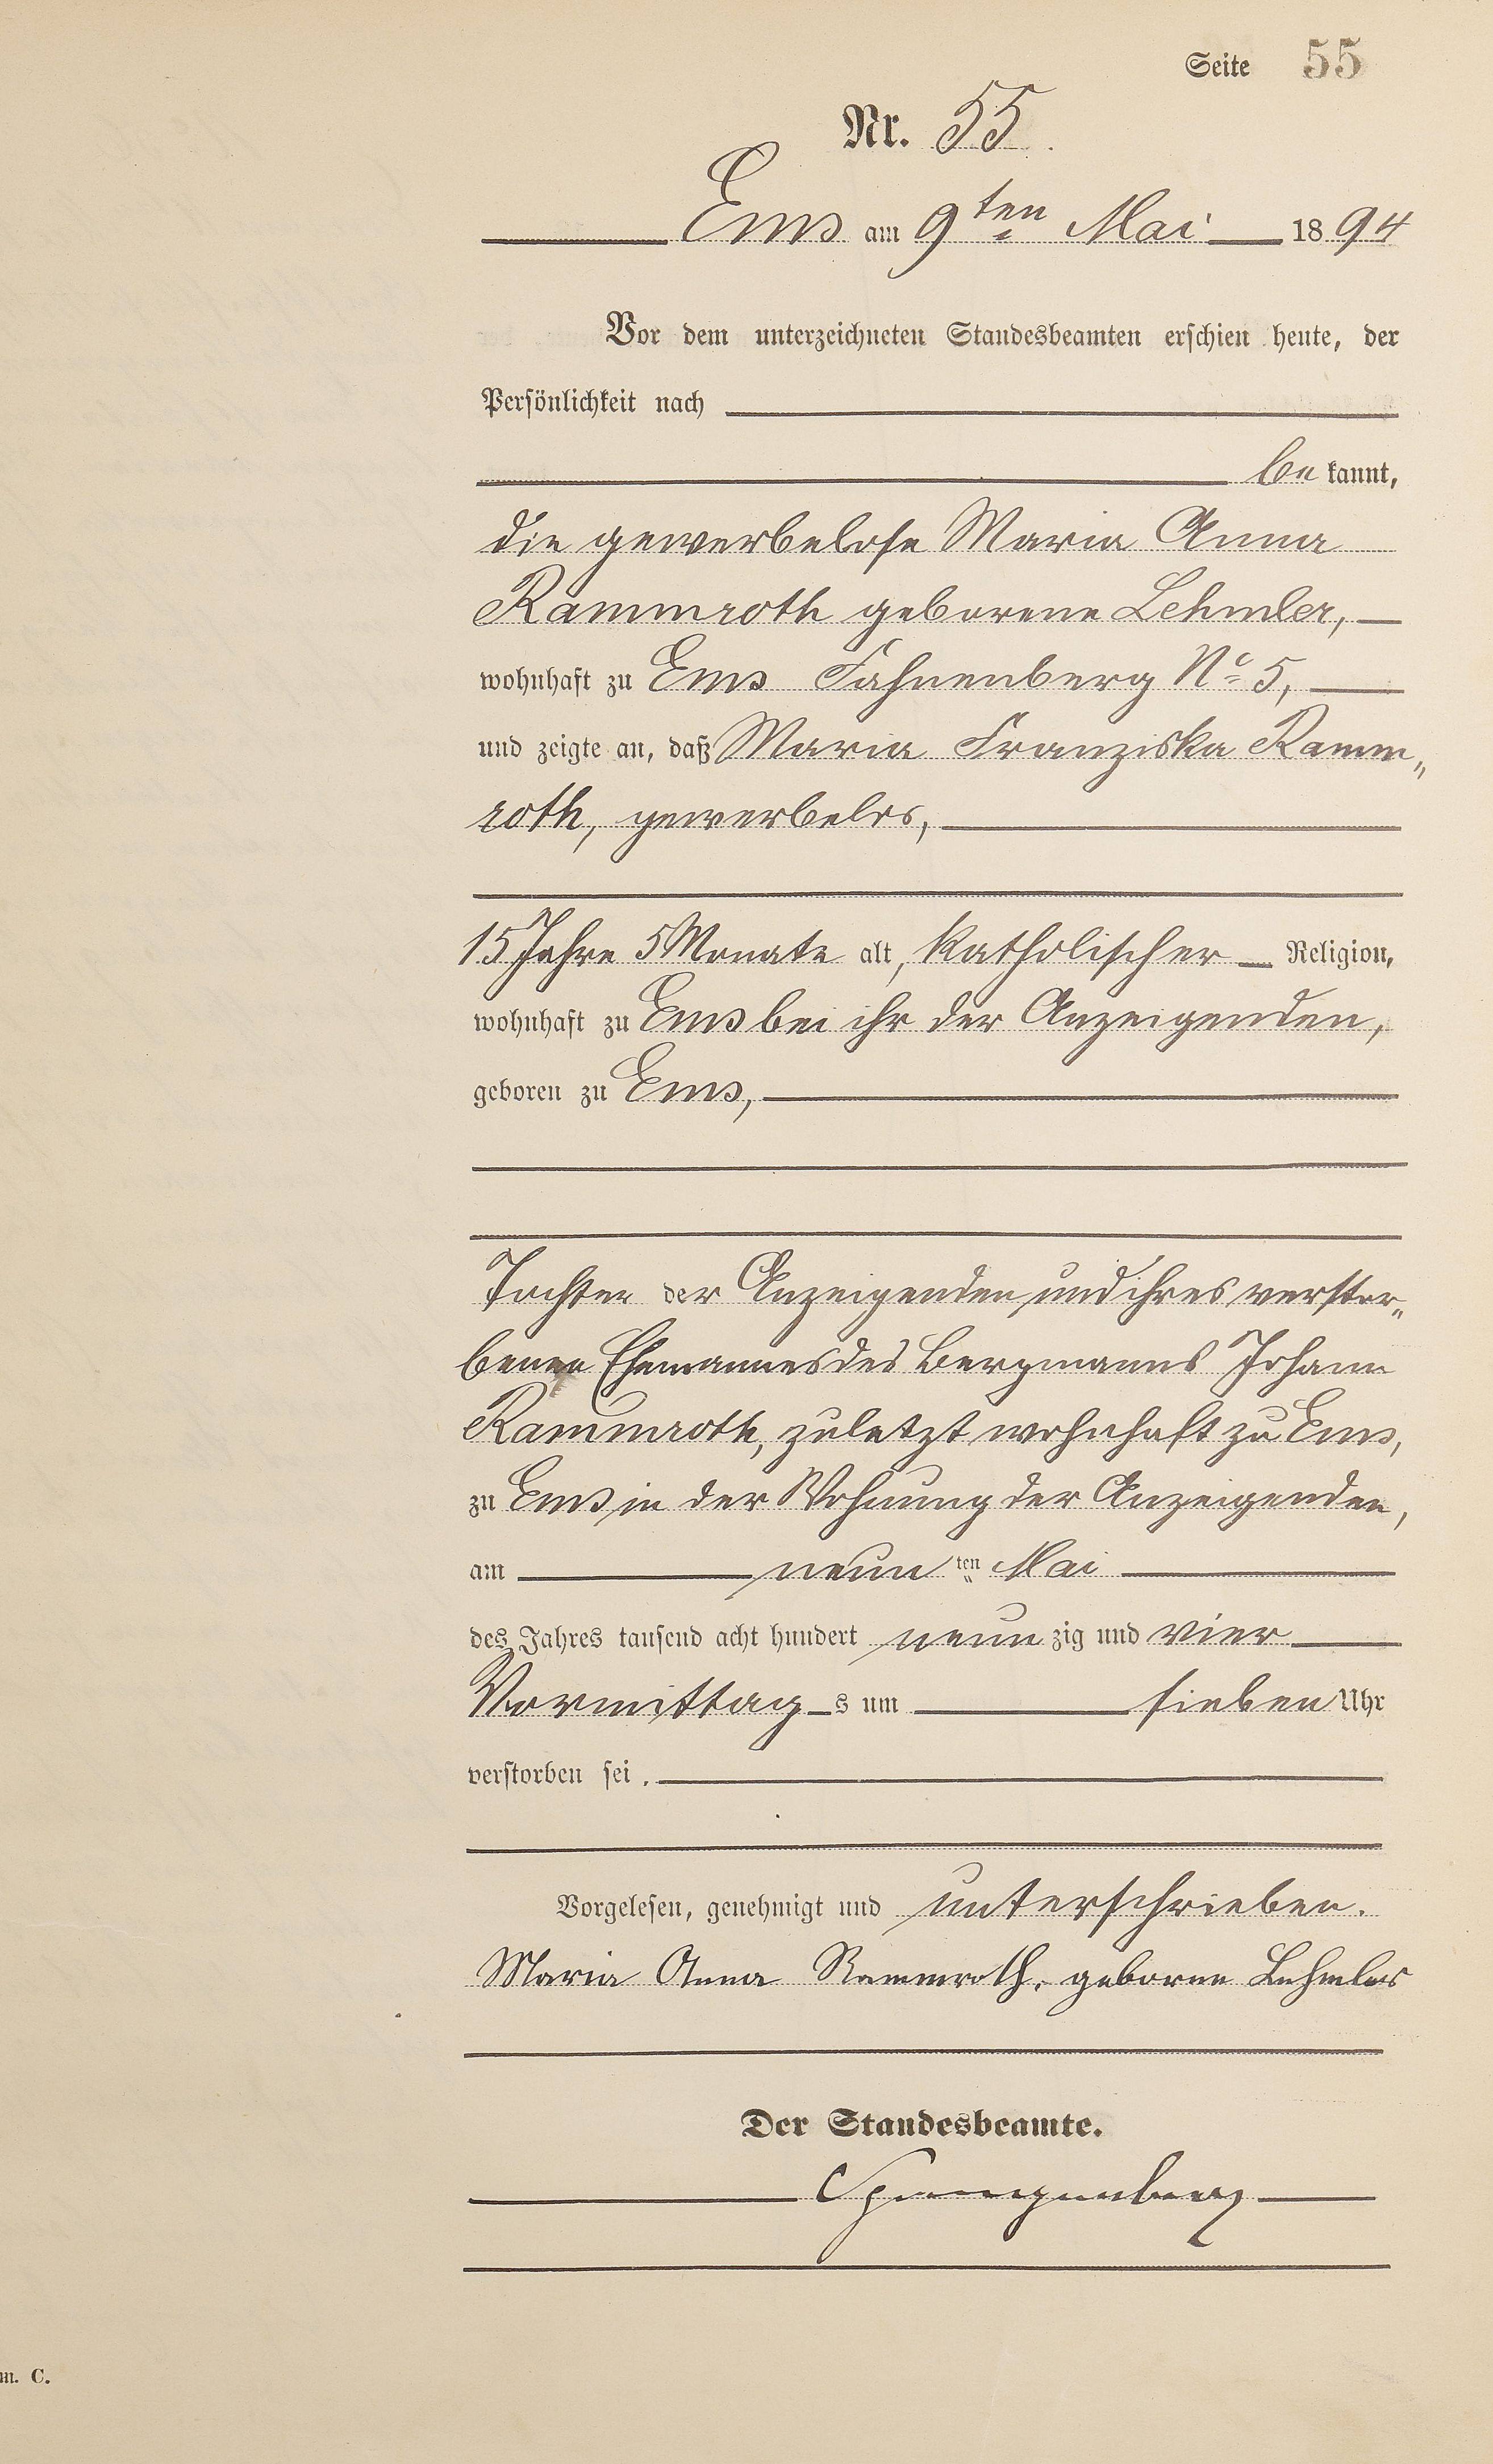 Seite 55
Nr. 55.
Ems am 9ten Mai 1894
Vor dem unterzeichneten Standesbeamten erschien heute, der
Persönlichkeit nach
be kannt,
die gewerbelose Maria Anna
Rammroth geborene Lehmler,
wohnhaft zu Ems Fahnenberg No 5,
und zeigte an, daß Maria Franziska Ramm„
roth, gewerbelos,
15 Jahre 5 Monate alt, katholischer Religion,
wohnhaft zu Ems bei ihr der Anzeigenden,
geboren zu Ems,
Tochter der Anzeigenden und ihres verstor„
benen Ehemannes des Bergmanns Johann
Rammroth, zuletzt wohnhaft zu Ems,
zu Ems in der Wohnung der Anzeigenden,
am neun ten Mai
des Jahres tausend acht hundert neun zig und vier
Vormittag s um sieben Uhr
verstorben sei.
Vorgelesen, genehmigt und unterschrieben.
Maria Anna Rammroth, geborne Lehmler
Der Standesbeamte.
m. C.